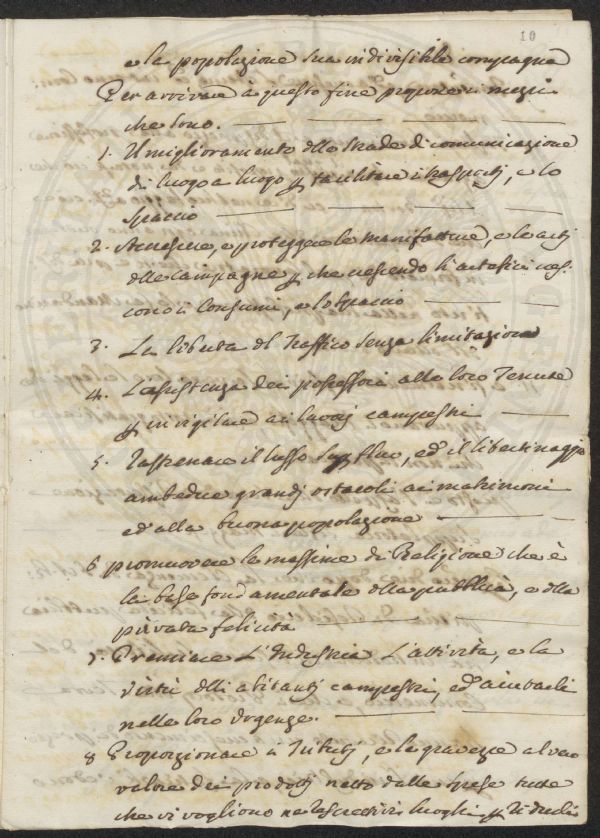 10
e la popolazione sua indivisibile compagna
Per arrivare a questo fine propone i mezzi
che sono.
1. Il miglioramento delle strade di comunicazione
di luogo a luogo p facilitare i trasporti, e lo
spaccio
2. Accrescere, e proteggere le manifatture, e le arti
delle campagne p che crescendo li artefici cres:
cono i Consumi, e lo spaccio
3. La libertà del Traffico senza limitazione
4. L'assistenza dei possessori alle loro Tenute
p invigilare ai lavorj campestri
5. Raffrenare il lusso superfluo, ed il libertinaggio
ambedue grandj ostacoli ai matrimoni
ed alla buona popolazione
6 promuovere le massime di Religione che è
la base fondamentale della pubblica, e della
privata felicità
7. Premiare L'Industria L'attività, e la
virtù delli abitantj campestri, ed aiutarli
nelle loro urgenze.
8 Proporzionare i Tributj, e le gravezze al vero
valore dei prodottj netto dalle spese tutte
che vi vogliono luoghi p